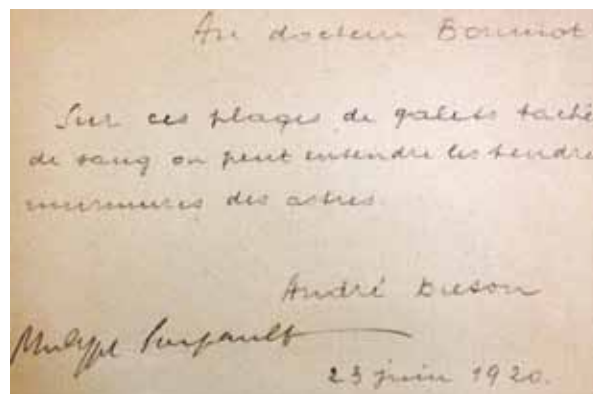 Au docteur Bonniot
Sur ces plages de galets taché
de sang on peut entendre les tendre
murmures des astres.
André Breton
Philippe Soupault
23 juin 1920.